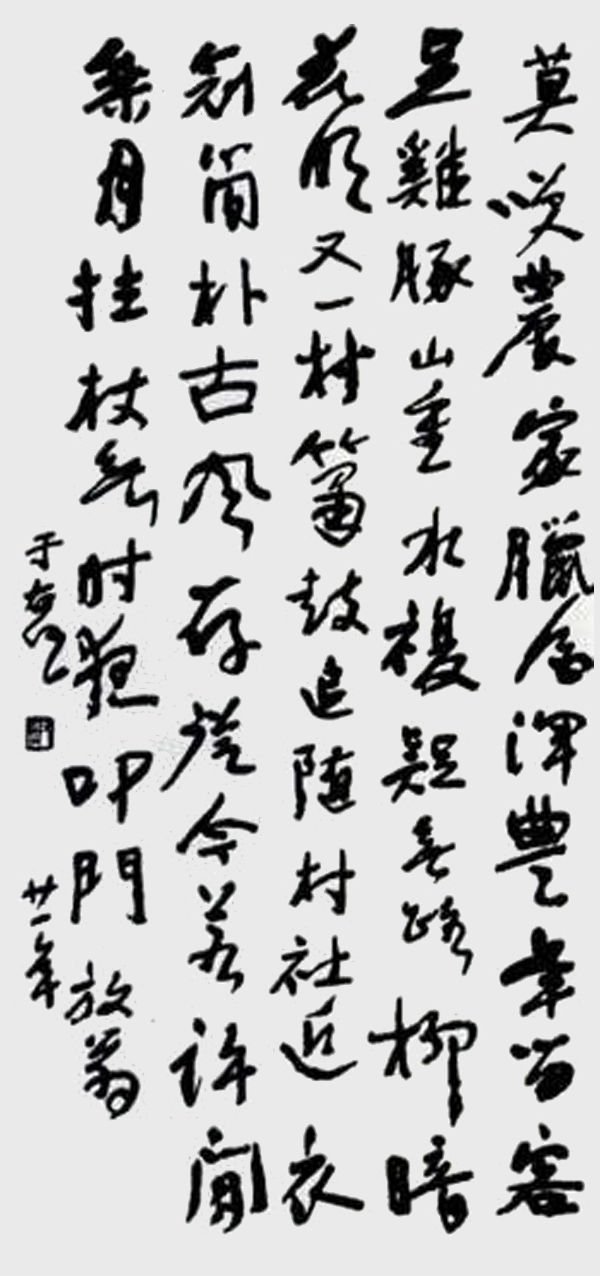 莫咲農家臘酒渾豐年留客
足雞豚山重水複疑無路柳暗
花明又一村簫鼓追隨村社近衣
冠簡朴古風存從今若許閒
乘月拄杖無时夜叩門放翁
于右任
廿一年